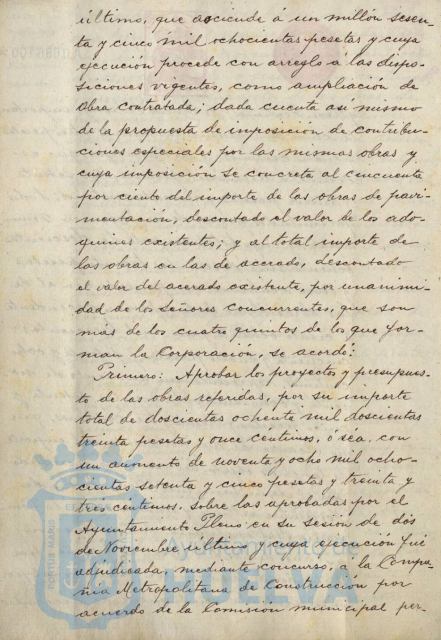 último, que asciende á un millón sesen-
ta y cinco mil ochocientas pesetas y cuya
ejecución procede con arreglo á las dispo-
siciones vigentes, como ampliación de
obra contratada; dada cuenta así mismo
de la propuesta de imposición de contribu-
ciones especiales por las mismas obras y
cuya imposición se concreta al cincuenta
por ciento del importe de las obras de pavi-
mentación, descontado el valor de los ado-
quines existentes; y al total importe de
las obras en las de acerado, descontado
el valor del acerado existente, por unanimi-
dad de los Señores concurrentes, que son
más de los cuatro quintos de los que for-
man la Corporación, se acordó:
Primero: Aprobar los proyectos y presupues-
to de las obras referidas, por su importe
total de doscientas ochenta mil doscientas
treinta pesetas y once céntimos, ó sea, con
un aumento de noventa y ocho mil ocho-
cientas setenta y cinco pesetas y treinta y
tres céntimos, sobre las aprobadas por el
Ayuntamiento Pleno en su sesión de dos
de Noviembre último y cuya ejecución fué
adjudicada, mediante concurso, á la Compa-
ñia Metropolitana de Construcción por
acuerdo de la Comisión municipal per-
PORTUS MARIS
Ayuntamiento de
HUELVA